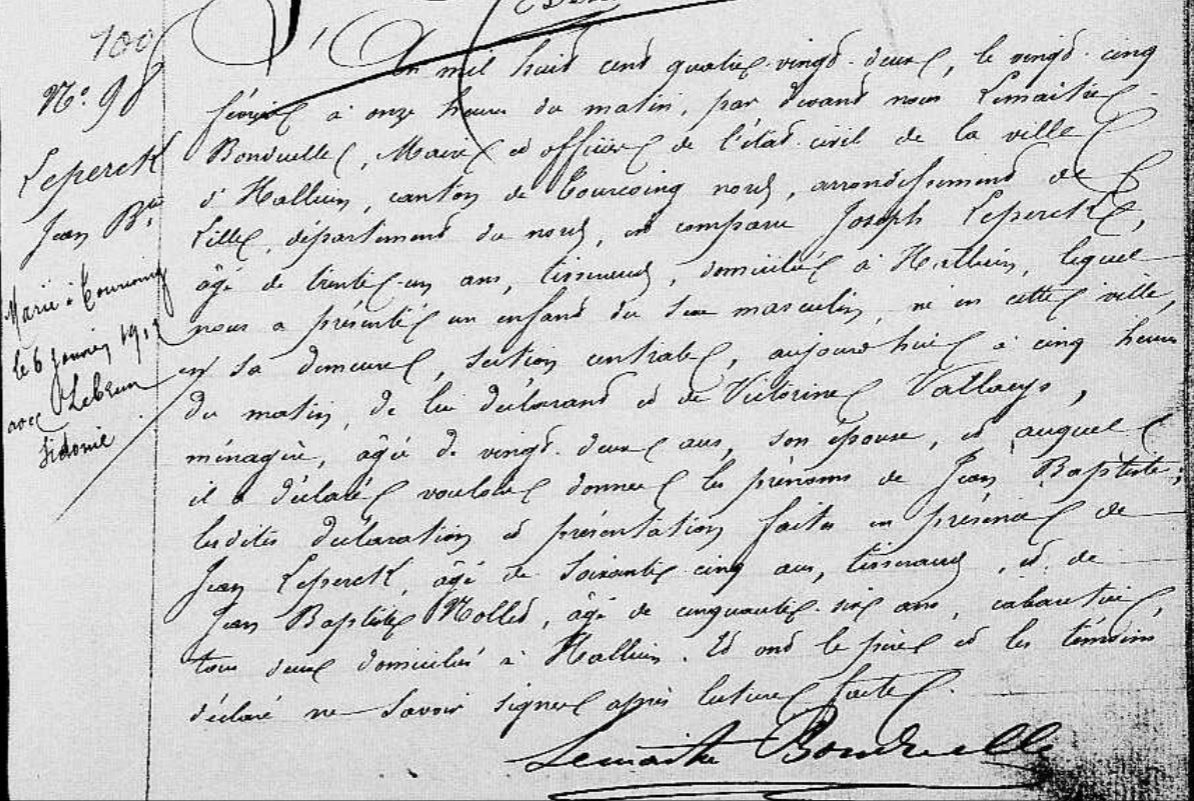 100
N.° 98
Leperck
Jean B.te
Marié à Tourcoing
le 6 janvier 1912
avec Lebrun
Sidonie
L'An mil huit cent quatre-vingt-deux, le vingt-cinq
février à onze heures du matin, par devant nous Lemaitre
Bonduelle, Maire et officier de l'état-civil de la ville
d'Halluin, canton de Tourcoing nord, arrondissement de
Lille, département du nord, est comparu Joseph Leperck,
âgé de trente-un ans, tisserand, domicilié à Halluin, lequel
nous a présenté un enfant du sexe masculin, né en cette ville,
en sa demeure, section centrale, aujourd'hui à cinq heures
du matin, de lui déclarant et de Victorine Vallaeys,
ménagère, âgée de vingt-deux ans, son épouse, et auquel
il a déclaré vouloir donner les prénoms de Jean Baptiste;
lesdites déclaration et présentation faites en présence de
Jean Leperck, âgé de soixante-cinq ans, tisserand, et de
Jean Baptiste Nollet, âgé de cinquante-six ans, cabaretier,
tous deux domiciliés à Halluin. Et ont le père et les témoins
déclaré ne savoir signer après lecture faite.
Lemaitre Bonduelle